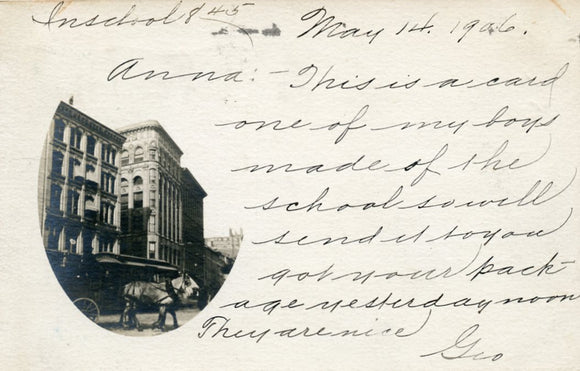 In school 8 45
May 14. 1906.
Anna:- This is a card
one of my boys
made of the
school so will
send it to you
got your pack-
age yesterday noon
They are nice
Geo